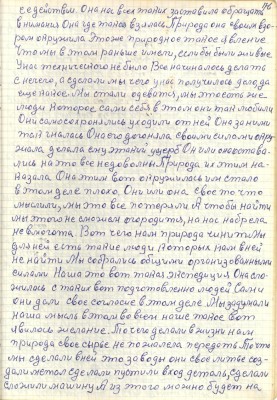 96
се действии. Она нас всех таких заставила обращать
внимание. Она где такое взялась. Природа она своим взо-
ром окружила. Это же природное такое явление
Что мы в этом раньше имели, если бы были живые
У нас технического не было. Все начиналось делать
с нечего, а сделали мы чего у нас получилось. дело да
еще такое. Мы стали одеваться, мы это есть же
люди которое сами себя в этом они так любили
Они самосохранялись уходили от ней Она за ними
так гналась Она его догоняла своими силами окру
жала делала ему такой ущерб Они или
лись на это все недовольны. Природа их этим на-
казала. Она этим вот окружилась им стало
в этом деле плохо. Они или она свое то что
мыслили, мы это все потеряли А чтобы найти
мы этого не сможем огородить, на нас набрела
невмогота. Вот чего нам природа чинит. Мы
для ней есть такие люди которых нам в ней
не найти Мы собрались общими организованными
силами Наша это вот такая экспедиция. Она сло-
жилась с таких вот подготовленно людей Сами
они дали свое согласие в этом деле. Мы задумали
наша мысль в том во всем наше такое вот
явилось желание. То чего делали в жизни нам
природа свое сырье не пожалела передать. То что
мы сделали в ней это заводы они свое литье соз-
дали металл сделали пустили в ход деталь, сделали
сложили машину. А из этого можно будет на